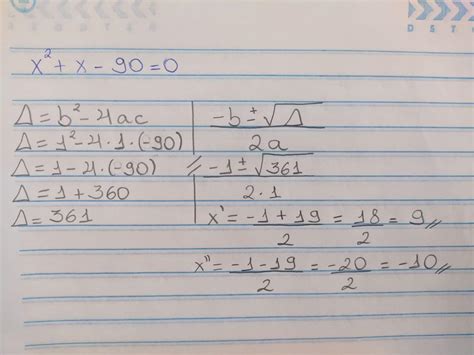 x² + x - 90 = 0
Δ = b² - 4ac
Δ = 1² - 4 · 1 · (-90)
Δ = 1 - 4 · (-90)
Δ = 1 + 360
Δ = 361
-b ± √Δ / 2a
-1 ± √361 / 2 · 1
x' = -1 + 19 / 2 = 18 / 2 = 9
x" = -1 - 19 / 2 = -20 / 2 = -10